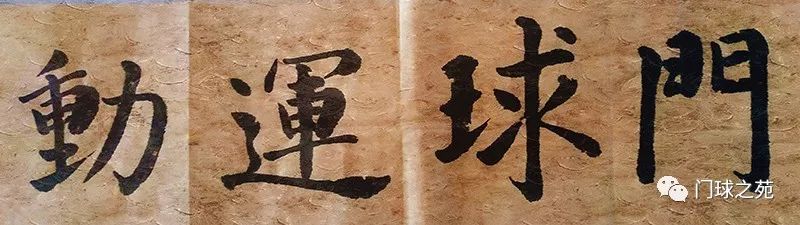 門球運動
门球之苑